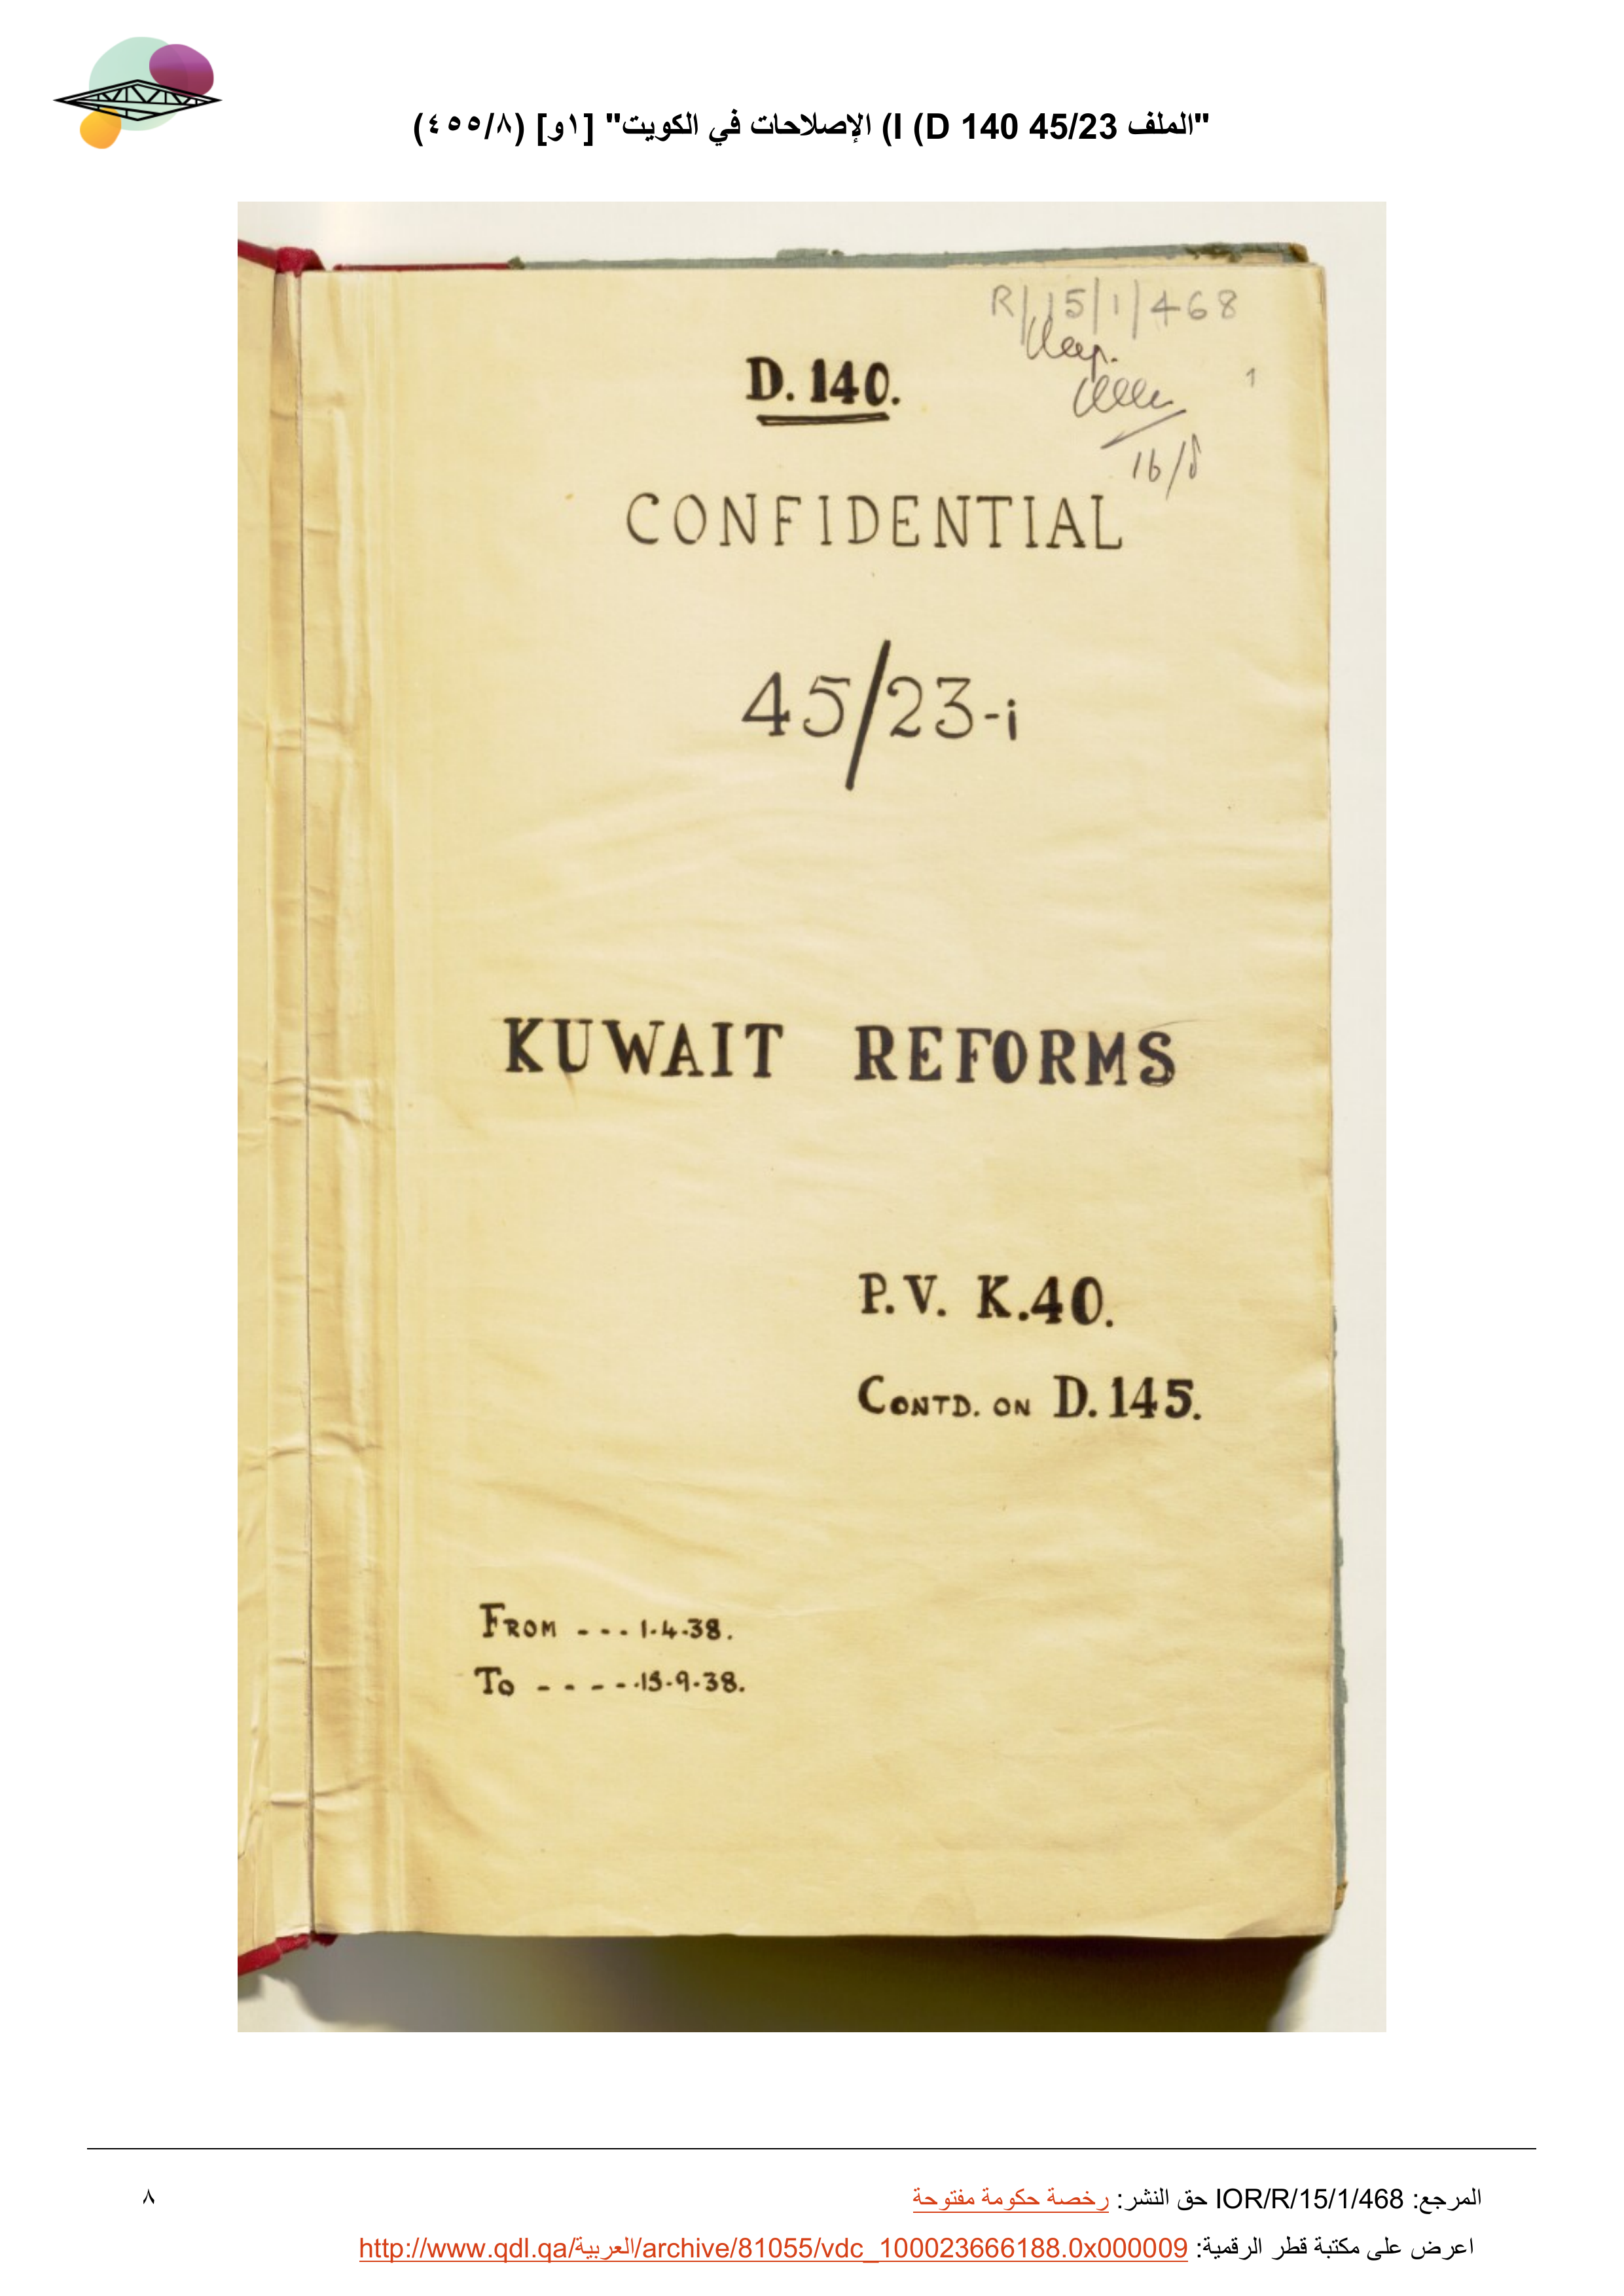 "الملف 45/23 I (D 140) الإصلاحات في الكويت" [١و] (٤٥٥/٨)
R/15/1/468
1
D. 140.
16/8
CONFIDENTIAL
45/23-i
KUWAIT REFORMS
P.V. K.40.
CONTD. ON D.145.
FROM --- 1.4.38.
TO ----- 15.9.38.
المرجع: IOR/R/15/1/468 حق النشر: رخصة حكومة مفتوحة
٨
اعرض على مكتبة قطر الرقمية: http://www.qdl.qa/العربية/archive/81055/vdc_100023666188.0x000009